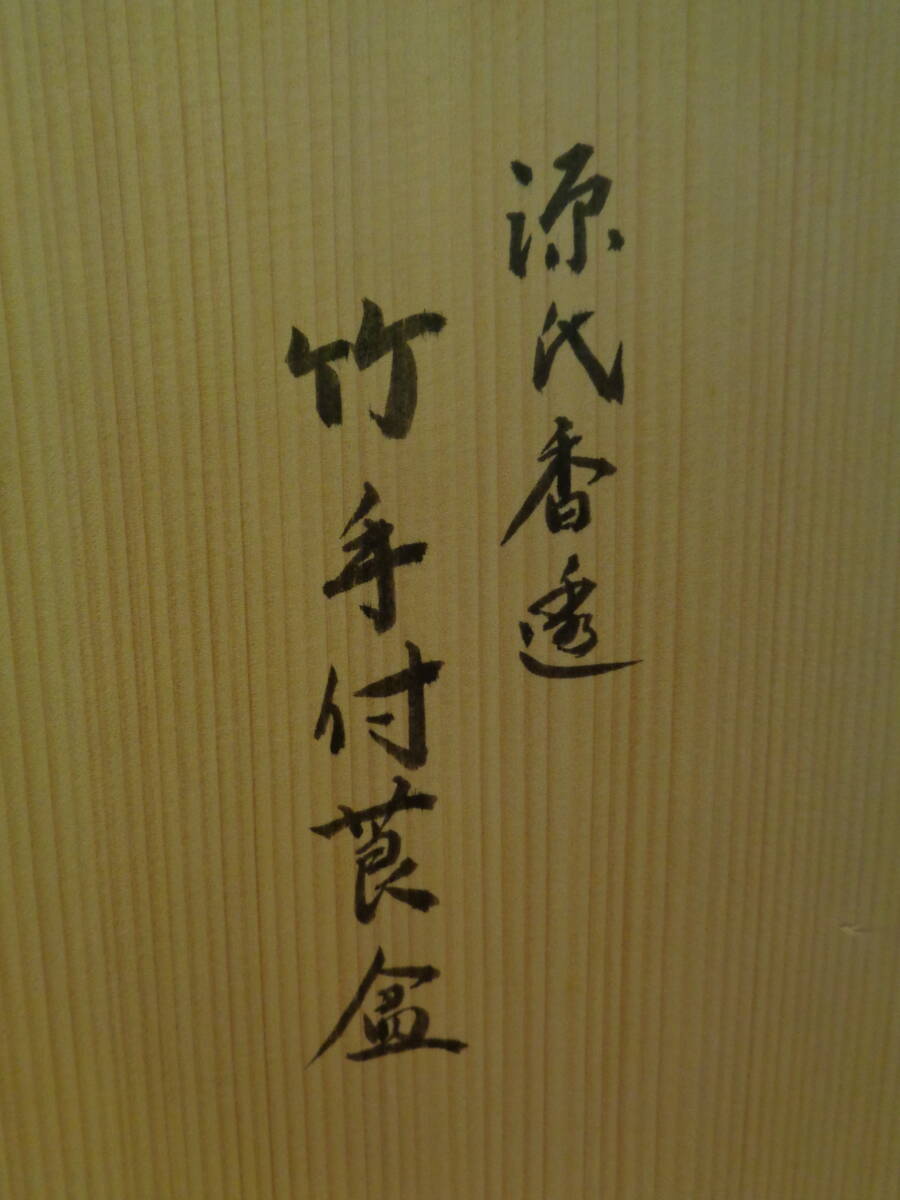 源氏香透
竹手付莨盆